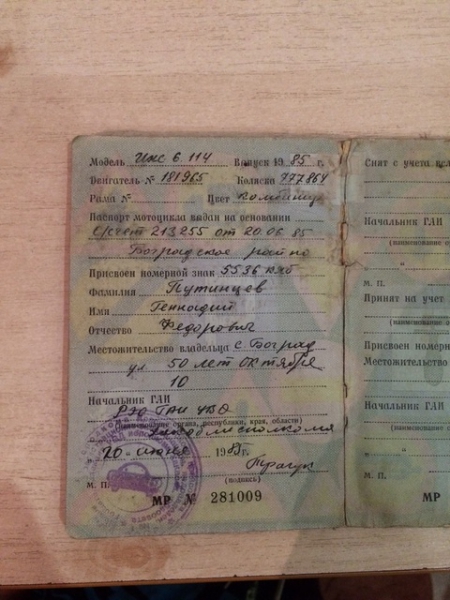 Модель Иж 6.114 Выпуск 1985 г.
Двигатель № 181965 Коляска 777864
Рама № Цвет Комбинир
Паспорт мотоцикла выдан на основании
С/счет 213255 от 20.06.85
Боградское райпо
Присвоен номерной знак 5536
Фамилия Путинцев
Имя Геннадий
Отчество Федорович
Местожительство владельца с. Боград
ул 50 лет Октября
10
Начальник ГАИ
РЭО ГАИ УВД
(наименование органа, республики, края, области)
20 июня 1985г.
(подпись)
М. П.
МР № 281009
Снят с учета
Начальник ГАИ
(наименование
М. П.
Принят на учет
(наименование
Присвоен номерн
Местожительство
Начальник ГАИ
(наименование
М. П.
МР